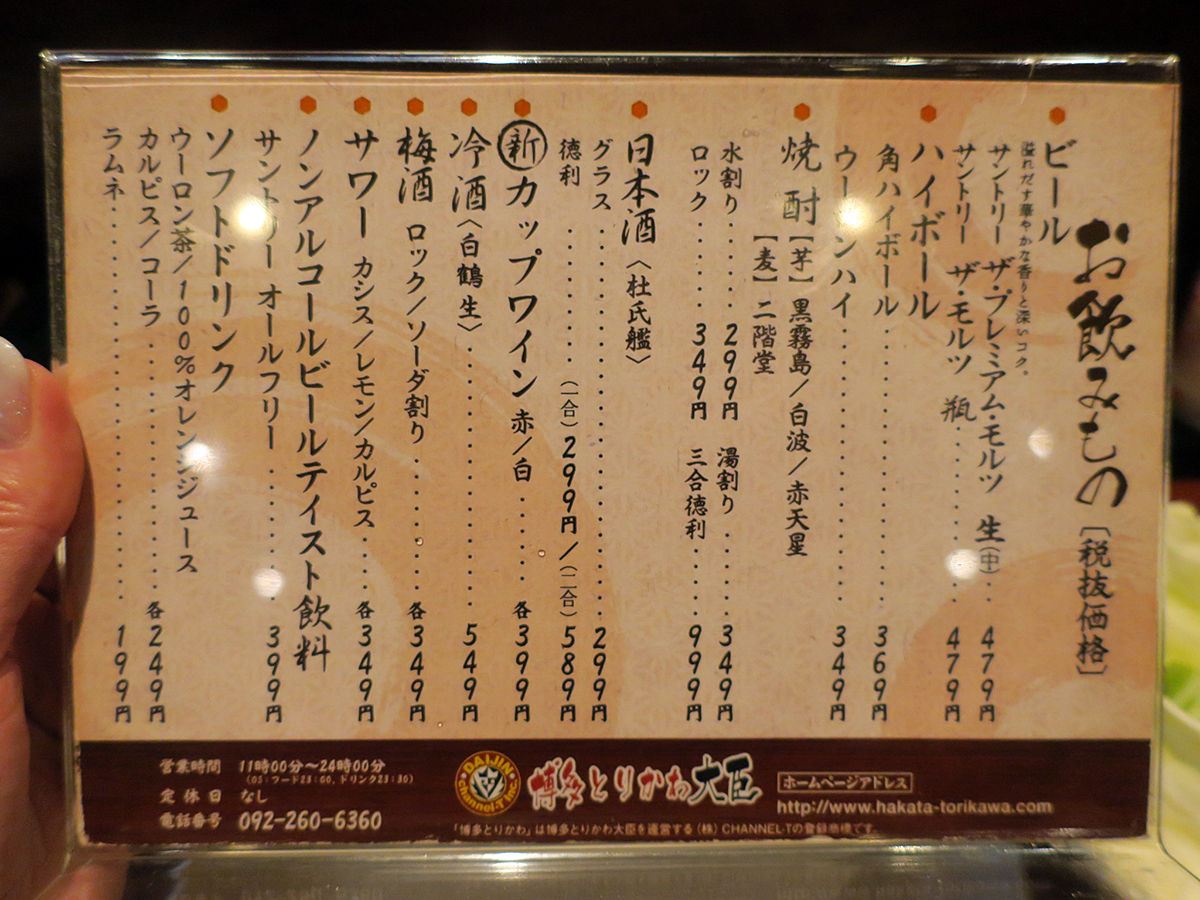 お飲みもの［税抜価格］
ビール
溢れだす華やかな香りと深いコク。
サントリー ザ・プレミアム・モルツ 生(中)‥479円
サントリー ザ・モルツ 瓶‥‥‥‥‥479円
ハイボール
角ハイボール‥‥‥‥‥‥‥369円
ウーロンハイ‥‥‥‥‥‥‥349円
焼酎【芋】黒霧島／白波／赤天星
【麦】二階堂
水割り‥‥‥‥299円 湯割り‥‥‥‥349円
ロック‥‥‥‥349円 三合徳利‥‥‥999円
日本酒〈杜氏鑑〉
グラス‥‥‥‥‥‥‥‥‥‥299円
徳利‥‥‥‥‥(一合)299円／(二合)589円
新カップワイン 赤／白‥‥‥各399円
冷酒〈白鶴 生〉‥‥‥‥‥‥‥549円
梅酒 ロック／ソーダ割り‥‥‥‥各349円
サワー カシス／レモン／カルピス‥‥各349円
ノンアルコールビールテイスト飲料
サントリー オールフリー‥‥‥‥399円
ソフトドリンク
ウーロン茶／100％オレンジジュース
カルピス／コーラ‥‥‥‥‥‥‥各249円
ラムネ‥‥‥‥‥‥‥‥‥‥‥199円
営業時間 11時00分〜24時00分
（OS：フード23:00、ドリンク23:30）
定休日 なし
電話番号 092-260-6360
DAIJIN
channel-T Inc.
博多とりかわ大臣
ホームページアドレス
http://www.hakata-torikawa.com
「博多とりかわ」は博多とりかわ大臣を運営する（株）CHANNEL-Tの登録商標です